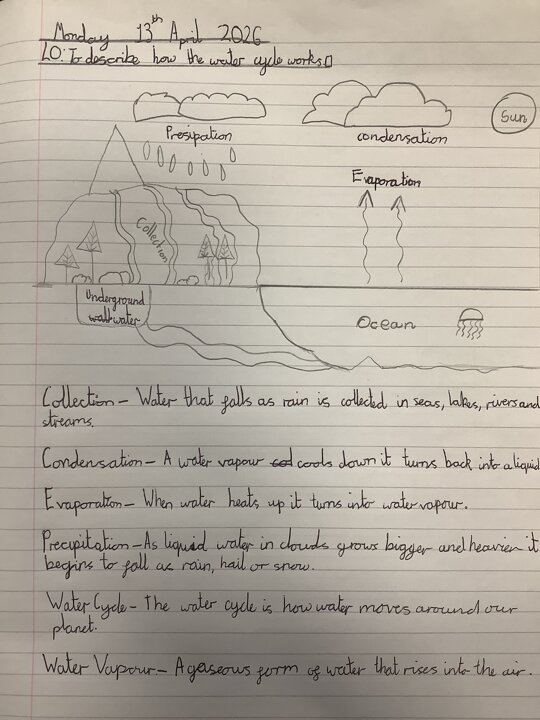 Monday 13th April 2026
LO: To describe how the water cycle works.
Sun
Presipation
condensation
Evaporation
Collection
Underground
water
Ocean
Collection – Water that falls as rain is collected in seas, lakes, rivers and
streams.
Condensation – A water vapour cools down it turns back into a liquid
Evaporation – When water heats up it turns into water vapour.
Precipitation – As liquid water in clouds grows bigger and heavier it
begins to fall as rain, hail or snow.
Water Cycle – The water cycle is how water moves around our
planet.
Water Vapour – A gaseous form of water that rises into the air.